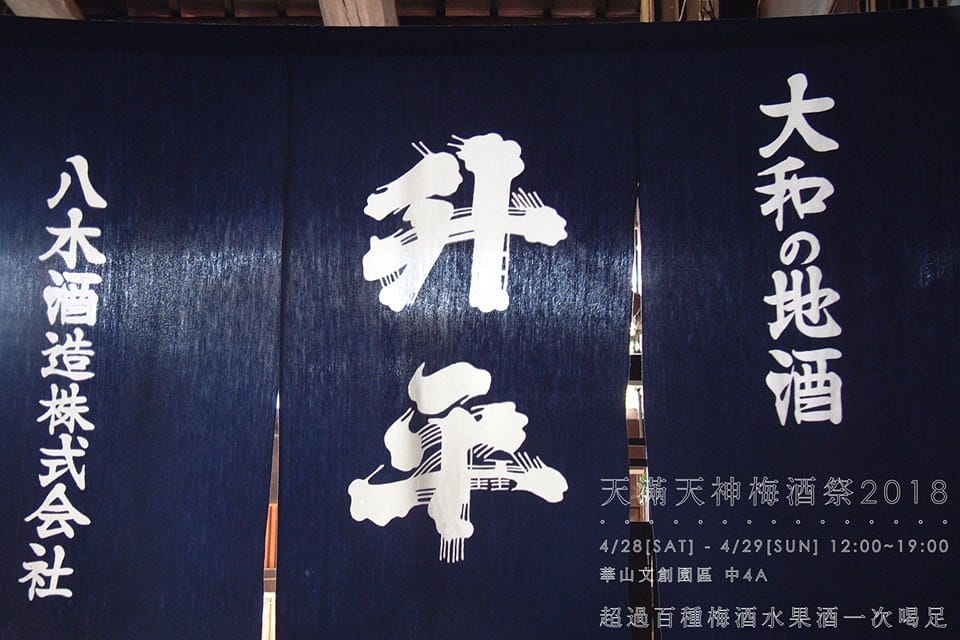 大和の地酒
升平
八木酒造株式会社
天滿天神梅酒祭2018
4/28[SAT] - 4/29[SUN] 12:00~19:00
華山文創園區 中4A
超過百種梅酒水果酒一次喝足